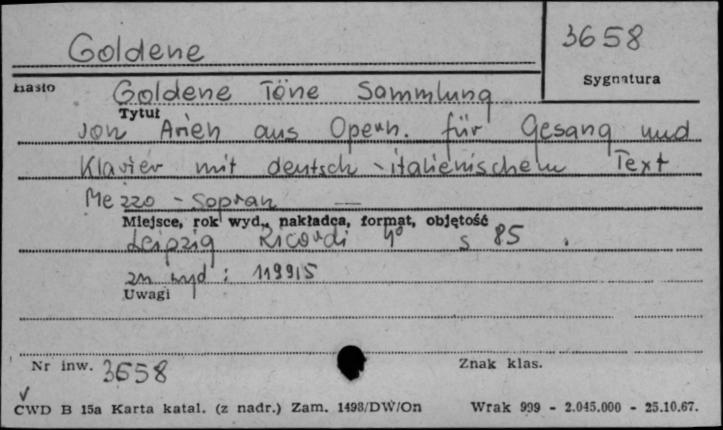 Goldene
3658
Sygnatura
Hasło
Goldene Töne Sammlung
Tytuł
von Arien aus Opern. für Gesang und
Klavier mit deutsch-italienischem Text
Mezzo - Sopran —
Miejsce, rok wyd., nakładca, format, objętość
Leipzig Ricordi 4° s 85.
zn wyd: 119915
Uwagi
Nr inw. 3658
Znak klas.
CWD B 15a Karta katal. (z nadr.) Zam. 1498/DW/On Wrak 999 - 2.045.000 - 25.10.67.